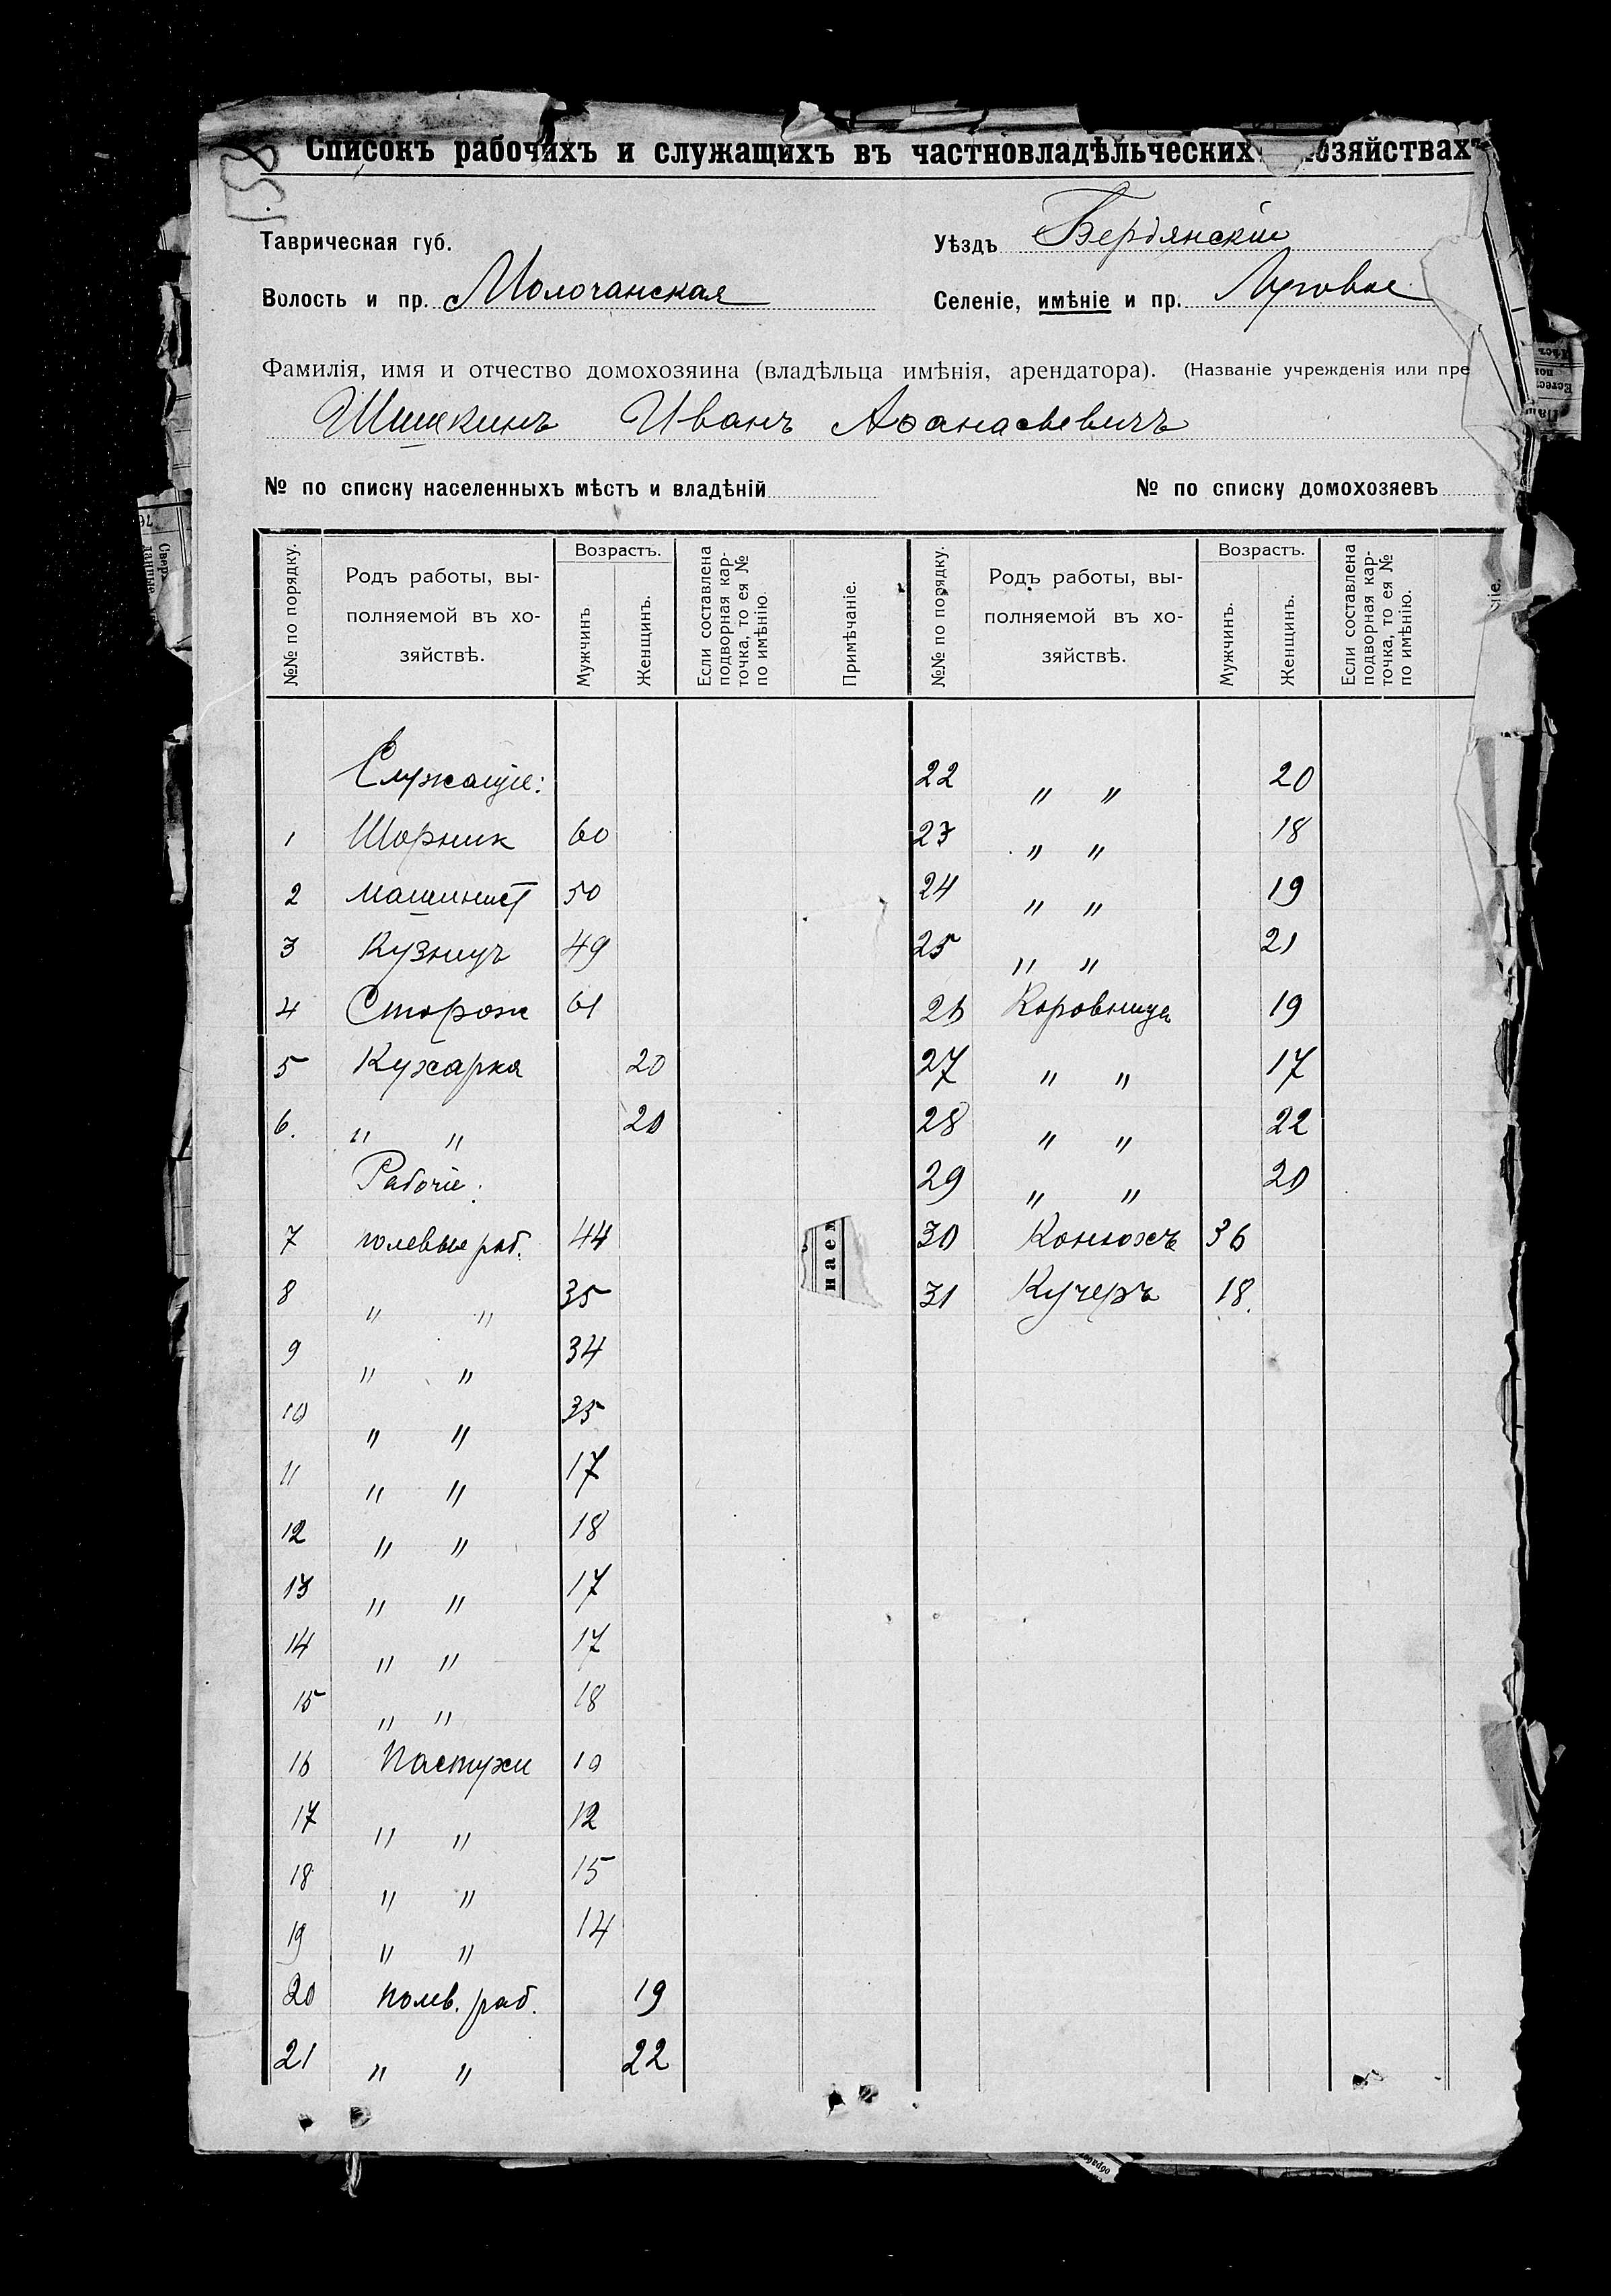 158
Списокъ рабочихъ и служащихъ въ частновладѣльческихъ хозяйствахъ
Таврическая губ.
Уѣздъ Бердянскій
Волость и пр. Молочанская
Селеніе, имѣніе и пр. Луговое
Фамилія, имя и отчество домохозяина (владѣльца имѣнія, арендатора). (Названіе учрежденія или пре
Шишкинъ Иванъ Аѳанасьевичъ
№ по списку населенныхъ мѣстъ и владѣній
№ по списку домохозяевъ
№№ по порядку. Родъ работы, выполняемой въ хозяйствѣ. Возрастъ. Мужчинъ Женщинъ. Если составлена подворная карточка, то ея № по имѣнію. Примѣчаніе.
№№ по порядку. Родъ работы, выполняемой въ хозяйствѣ. Возрастъ. Мужчинъ. Женщинъ. Если составлена подворная карточка, то ея № по имѣнію. ніе.
Служащіе:
1 Шорник 60
2 машинист 50
3 Кузнецъ 49
4 Сторож 61
5 Кухарка 20
6. " " 20
Рабочіе:
7 полевые раб. 44
8 " " 35
9 " " 34
10 " " 35
11 " " 17
12 " " 18
13 " " 17
14 " " 17
15 " " 18
16 Пастухи 10
17 " " 12
18 " " 15
19 " " 14
20 полев. раб. 19
21 " " 22
22 " " 20
23 " " 18
24 " " 19
25 " " 21
26 Коровница 19
27 " " 17
28 " " 22
29 " " 20
30 Конюхъ 36
31 Кучеръ 18.
наем